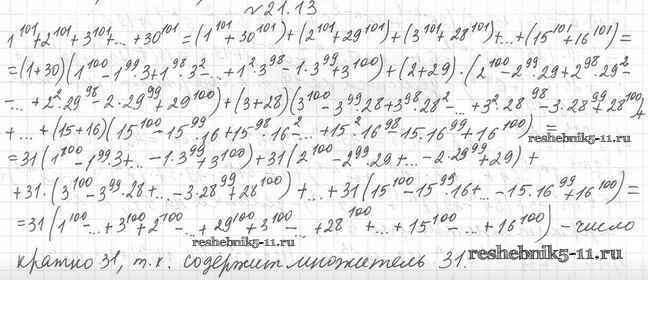 №21.13
1^101+2^101+3^101+...+30^101=(1^101+30^101)+(2^101+29^101)+(3^101+28^101)+...+(15^101+16^101)=
=(1+30)(1^100-1^99·3+1^98·3^2-...+1^2·3^98-1·3^99+3^100)+(2+29)·(2^100-2^99·29+2^98·29^2-
-...+2^2·29^98-2·29^99+29^100)+(3+28)(3^100-3^99·28+3^98·28^2-...+3^2·28^98-3·28^99+28^100)+
+...+(15+16)(15^100-15^99·16+15^98·16^2-...+15^2·16^98-15·16^99+16^100)=
reshebnik5-11.ru
=31(1^100-1^99·3+...-1·3^99+3^100)+31(2^100-2^99·29+...-2·29^99+29)+
+31·(3^100-3^99·28+...-3·28^99+28^100)+...+31(15^100-15^99·16+...-15·16^99+16^100)=
=31(1^100-...+3^100+2^100-...+29^100+3^100-...+28^100+...+15^100-...+16^100) - число
reshebnik5-11.ru
reshebnik5-11.ru
кратно 31, т.к. содержит множитель 31.